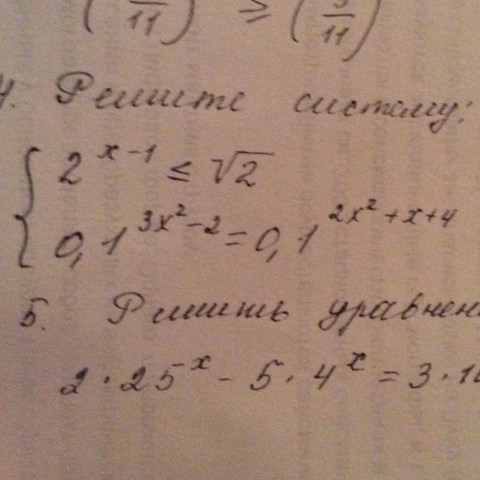 ( /11 ) ≥ ( 3/11 )
4. Решите систему:
{ 2^{x-1} ≤ √2
0,1^{3x²-2} = 0,1^{2x²+x+4}
5. Решить
2·25^x - 5·4^x = 3·